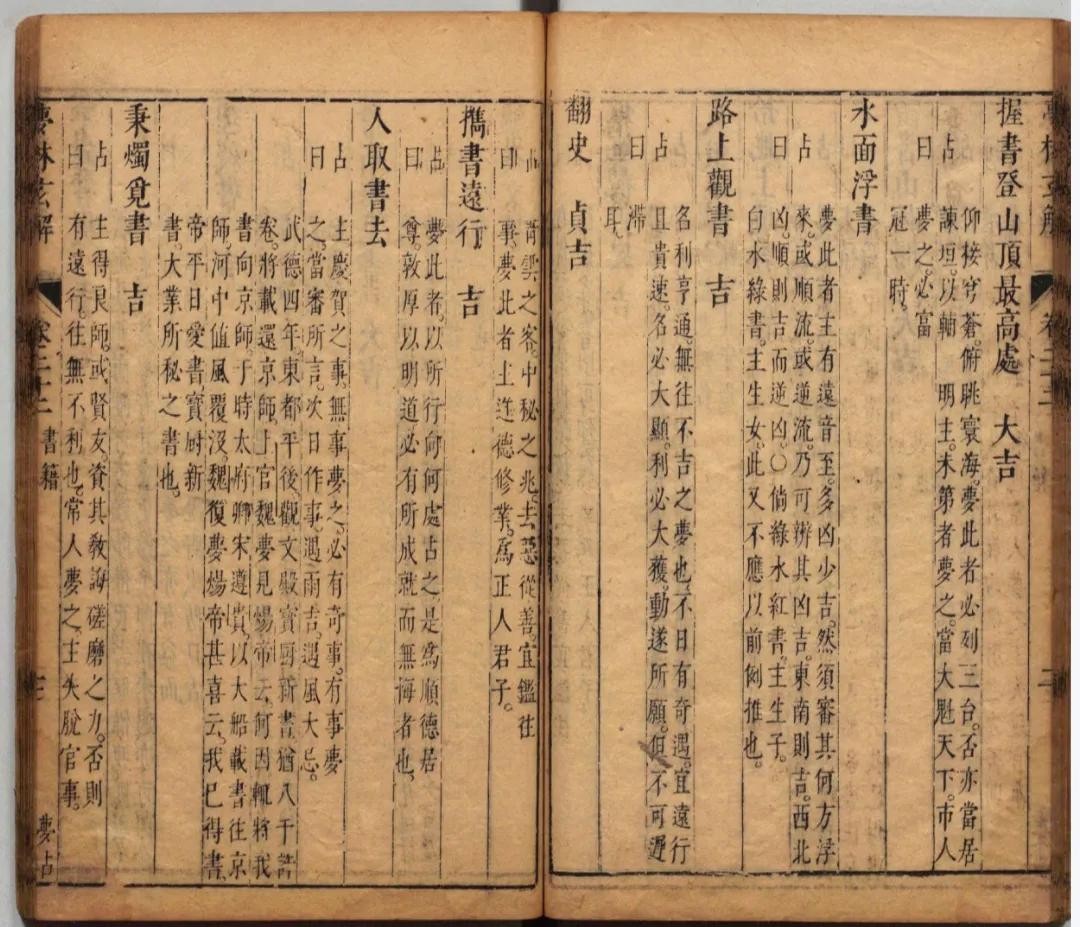 夢林玄解
卷二十二
二
握書登山頂最高處　大吉
占曰
仰接兮蒼。俯眺寰海。夢此者必列三台。否亦當居
諫垣。以輔　明主。未第者夢之。當大魁天下。市人
夢之。必富
冠一時。
水面浮書
占曰
夢此者主有遠音至。多凶少。吉。然須審其何方浮
來。或順流。或逆流。乃可辨其凶吉。東南則吉。西北
凶。順則吉而逆凶〇倘綠水紅書。主生子。
白水綠書。主生女。此又不應以前例推也。
路上觀書　吉
占曰
名利亨通。無往不吉之夢也。不日有奇遇。宜遠行
且貴速。名必大顯。利必大獲。動遂所願。但不可遲
滯
耳。
翻史　貞吉
占曰
芾雲之客。中秘之兆。去惡從善。宜鑑往
事。夢此者主進德修業。爲正人君子。
攜書遠行　吉
占曰
夢此者。以所行向何處占之。是爲順德居
尊。敦厚以明道。必有所成就而無悔者也。
人取書去
占曰
主慶賀之事。無事夢之。必有奇事。有事夢
之。當審所言。次日作事。遇雨吉。遇風大忌。
武德四年。東都平後。觀文殿寶厨新書猶八千許
卷。將載還京師。上官魏夢見煬帝云。何因輒將我
書向京師。于時太府卿宋遵貴。以大船載書往京
師。河中值風覆沒。魏復夢煬帝甚喜云。我已得書。
帝平日愛書。寶厨新
書大業所秘之書也。
秉燭覓書　吉
占曰
主得良師。或賢友。資其敎誨磋磨之力。否則
有遠行。往無不利也。常人夢之。主失脫官事。
夢林玄解
卷二十二　書籍
三
夢占